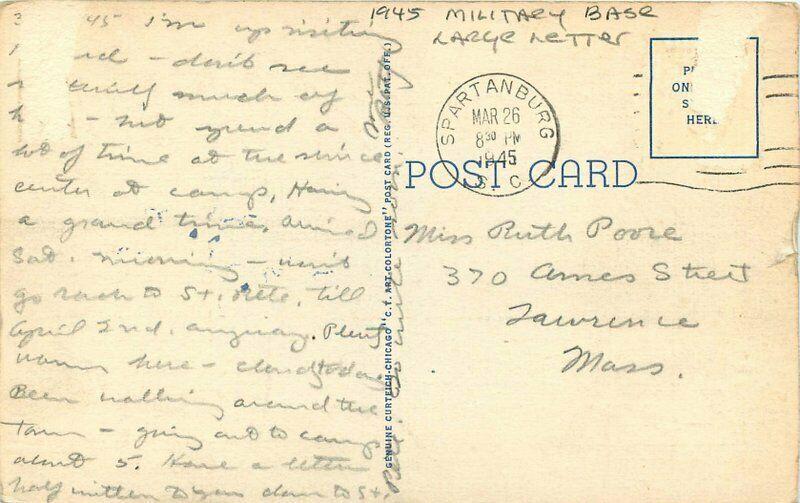 1945 MILITARY BASE
LARGE LETTER
45 I'm up visiting
- don't see
much of
- but spend a
lot of time at the service
center at camp. Having
a grand time. Arrived
Sat. morning - won't
go back to St. Pete. till
April 2nd. anyway. Plenty
warm here - cloudy today
Been walking around the
town - going out to camp
about 5. Have a letter
half written to you down to St.
Pete.
GENUINE CURTEICH-CHICAGO "C.T. ART-COLORTONE" POST CARD (REG. U.S. PAT. OFF.)
SPARTANBURG
MAR 26
8 30 PM
1945
S. C.
ONL
HERE
POST CARD
Miss Ruth Poore
370 Ames Street
Lawrence
Mass.